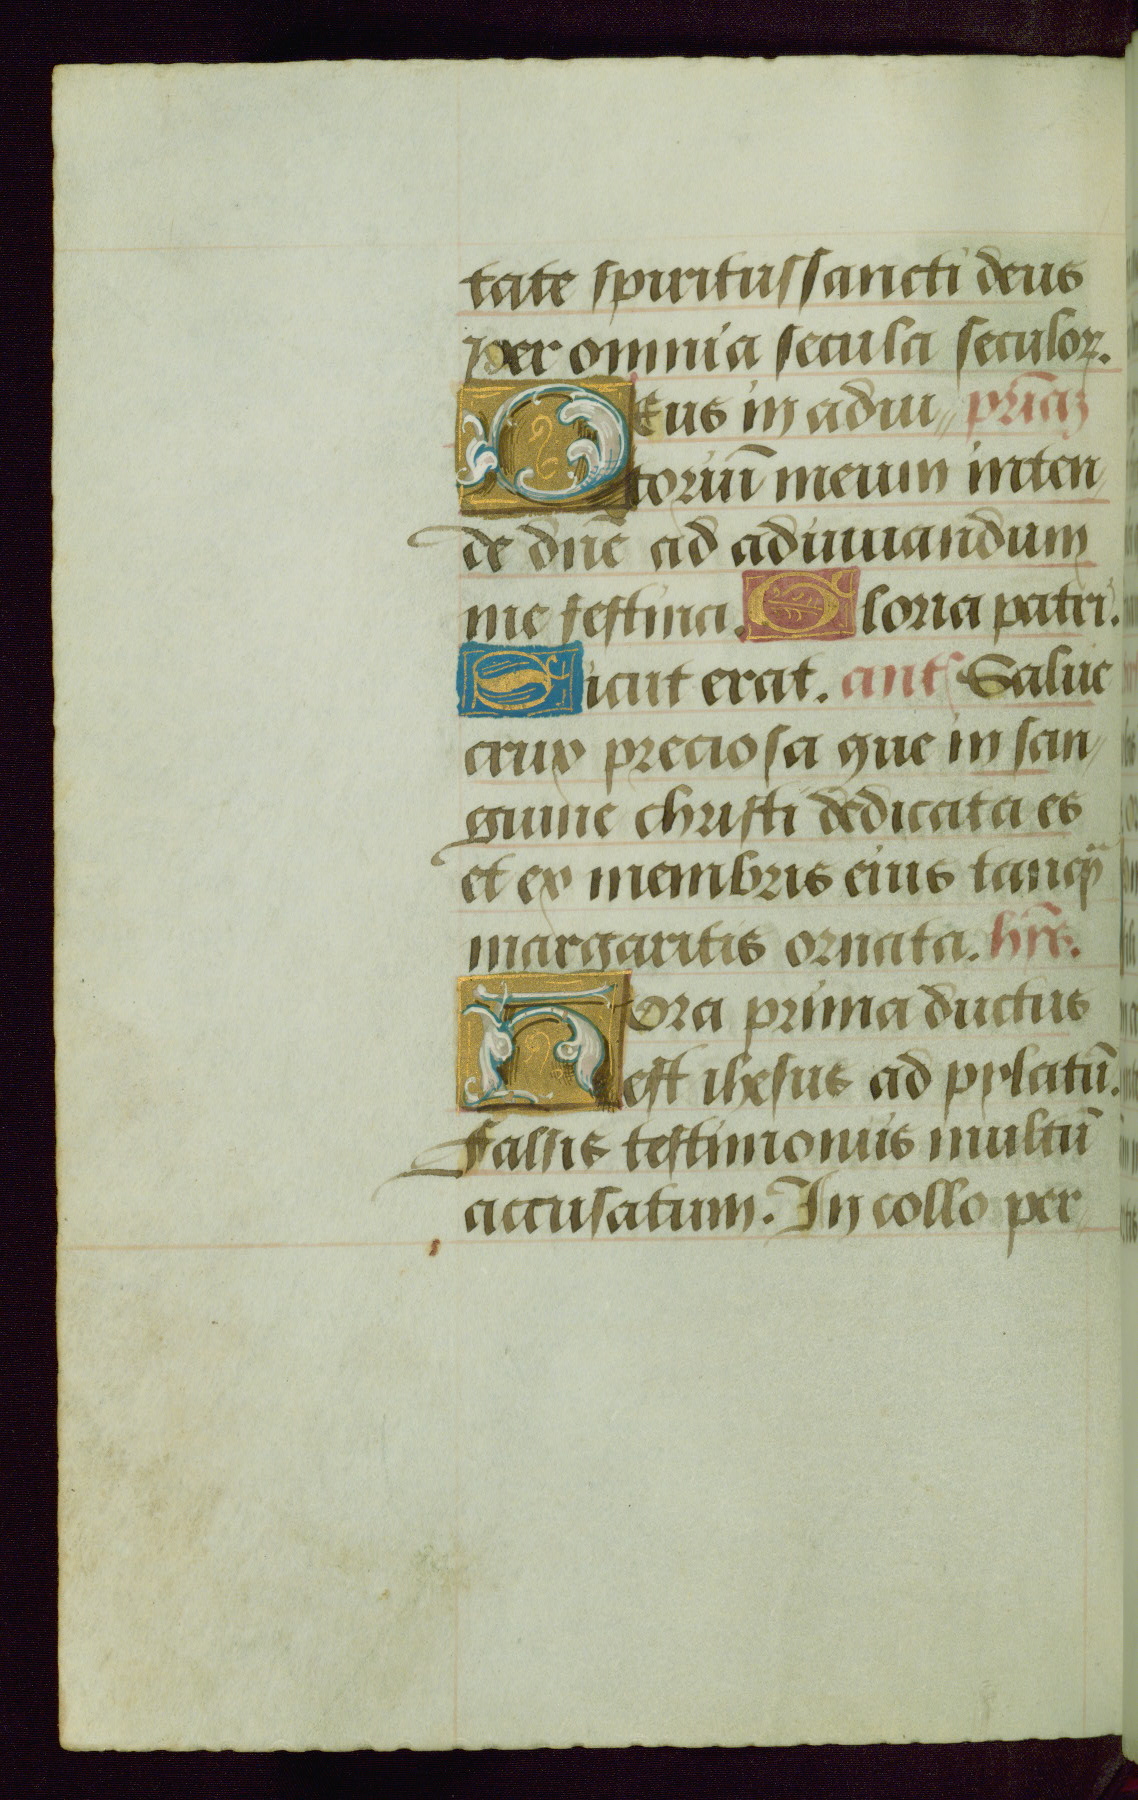 tate spiritus sancti deus
per omnia secula seculoꝝ.
Deus in adiu„ prīaꝫ
toriū meum inten
de dn̄e ad adiuuandum
me festina. Gloria patri.
Sicut erat. ant Salue
crux preciosa que in san
guine christi dedicata es
et ex membris eius tanq̄
margaritis ornata. hȳs.
Hora prima ductus
est ihesus ad pylatū.
Falsis testimoniis multū
accusatum. In collo per